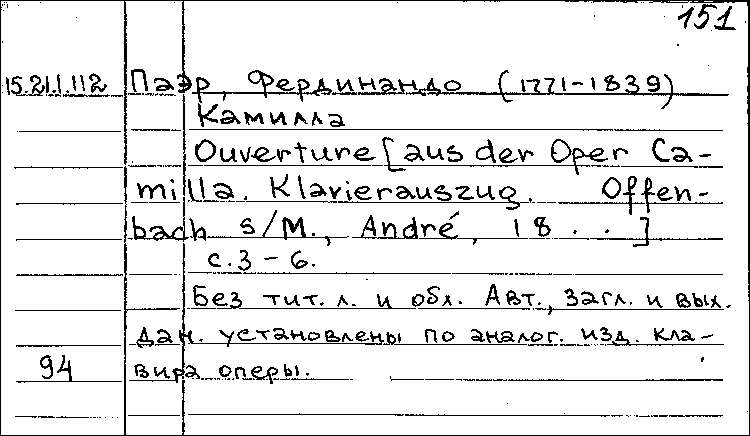 151
15.21.1.112 Паэр, Фердинандо (1771-1839)
Камилла
Ouverture [aus der Oper Ca-
milla. Klavierauszug. Offen-
bach s/M., André, 18 . . ]
с. 3 - 6.
Без тит. л. и обл. Авт., загл. и вых.
дан. установлены по аналог. изд. кла-
94 вира оперы.